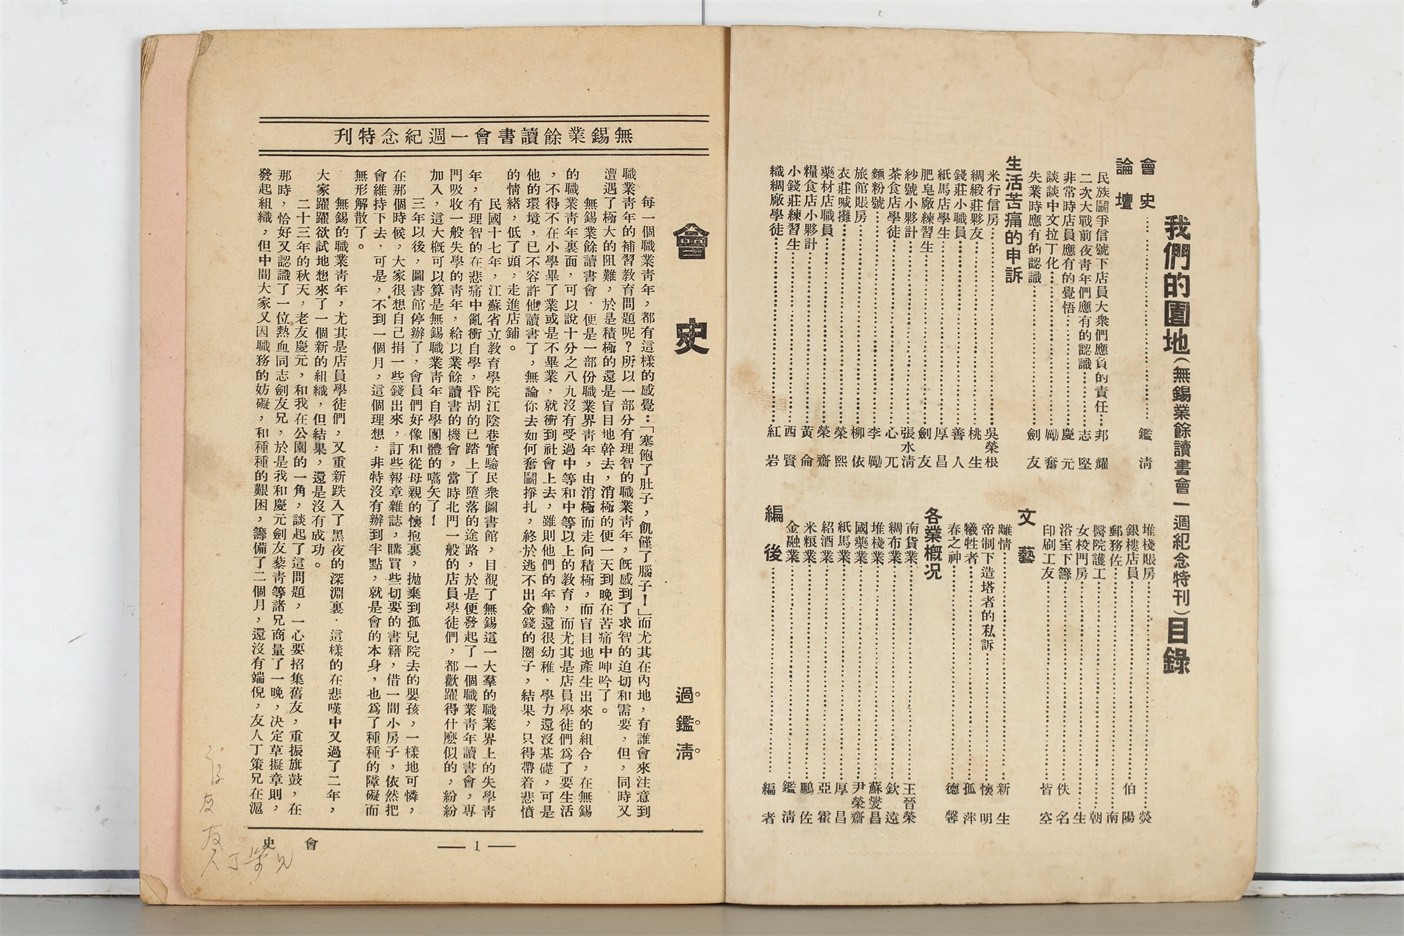 我們的園地(無錫業餘讀書會一週紀念特刊)目錄
會史……鑑清
論壇
民族鬭爭信號下店員大衆們應負的責任……邦耀
二次大戰前夜青年們應有的認識……志堅
非常時店員應有的覺悟……慶元
談談中文拉丁化……勵奮
失業時應有的認識……劍友
生活苦痛的申訴
米行信房……吳榮根
綢緞莊夥友……桃生
錢莊小職員……善人
紙馬店學生……厚昌
肥皂廠練習生……劍友
紗號小夥計……張水清
茶食店學徒……心兀
麵粉號……李勵
旅館賬房……柳依
衣莊喊攤……榮熙
藥材店職員……榮齋
糧食店小夥計……黃侖
小錢莊練習生……西賢
織綢廠學徒……紅岩
堆棧賬房……熒
銀樓店員……伯陽
郵務佐……南
醫院護工……朝
女校門房……生
浴室下籌……佚名
印刷工友……皆空
文藝
離情……新生
帝制下造塔者的私訴……懷明
犧牲者……孤萍
春之神……德馨
各業概況
南貨業……王晉榮
綢布業……欽遠
堆棧業……蘇燮昌
國藥業……尹榮齋
紙馬業……厚昌
紹酒業……亞霍
米糧業……鵬佐
金融業……鑑清
編後……編者
無錫業餘讀書會一週紀念特刊
會史
過鑑清
每一個職業青年,都有這樣的感覺:「塞飽了肚子,飢饉了腦子!」而尤其在內地,有誰會來注意到
職業青年的補習教育問題呢?所以一部分有理智的職業青年,旣感到了求智的迫切和需要,但,同時又
遭遇了極大的阻難,於是積極的還是盲目地幹去,消極的便一天到晚在苦痛中呻吟了。
無錫業餘讀書會,便是一部份職業界青年,由消極而走向積極,而盲目地產生出來的組合,在無錫
的職業青年裏面,可以說十分之八九沒有受過中等和中等以上的教育,而尤其是店員學徒們爲了要生活
,不得不在小學畢了業或是不畢業,就衝到社會上去,雖則他們的年齡還很幼稚、學力還沒基礎,可是
他的環境,已不容許他讀書了,無論你去如何奮鬭掙扎,終於逃不出金錢的圈子,結果,只得帶着悲憤
的情緒,低了頭,走進店鋪。
民國十七年,江蘇省立教育學院江陰巷實驗民衆圖書館,目覩了無錫這一大羣的職業界上的失學青
年,有理智的在悲痛中亂衝自學,昏胡的已踏上了墮落的途路,於是便發起了一個職業青年讀書會,專
門吸收一般失學的青年,給以業餘讀書的機會,當時北門一般的店員學徒們,都歡躍得什麽似的,紛紛
加入,這大槪可以算是無錫職業青年自學團體的嚆矢了!
三年以後,圖書館停辦了,會員們好像和從母親的懷抱裏,拋棄到孤兒院去的嬰孩,一樣地可憐,
在那個時候,大家很想自己捐一些錢出來,訂些報章雜誌,購買些切要的書籍,借一間小房子,依然把
會維持下去,可是,不到一個月,這個理想,非特沒有辦到半點,就是會的本身,也爲了種種的障礙而
無形解散了。
無錫的職業青年,尤其是店員學徒們,又重新跌入了黑夜的深淵裏,這樣的在悲嘆中又過了二年,
大家躍躍欲試地想來了一個新的組織,但結果,還是沒有成功。
二十三年的秋天,老友慶元,和我在公園的一角,談起了這問題,一心要招集舊友,重振旗鼓,在
那時,恰好又認識了一位熱血同志劍友兄,於是我和慶元劍友藜青等諸兄商量了一晚,決定草擬章則,
發起組織,但中間大家又因職務的妨礙,和種種的艱困,籌備了二個月,還沒有端倪,友人丁策兄在滬
會史
—1—